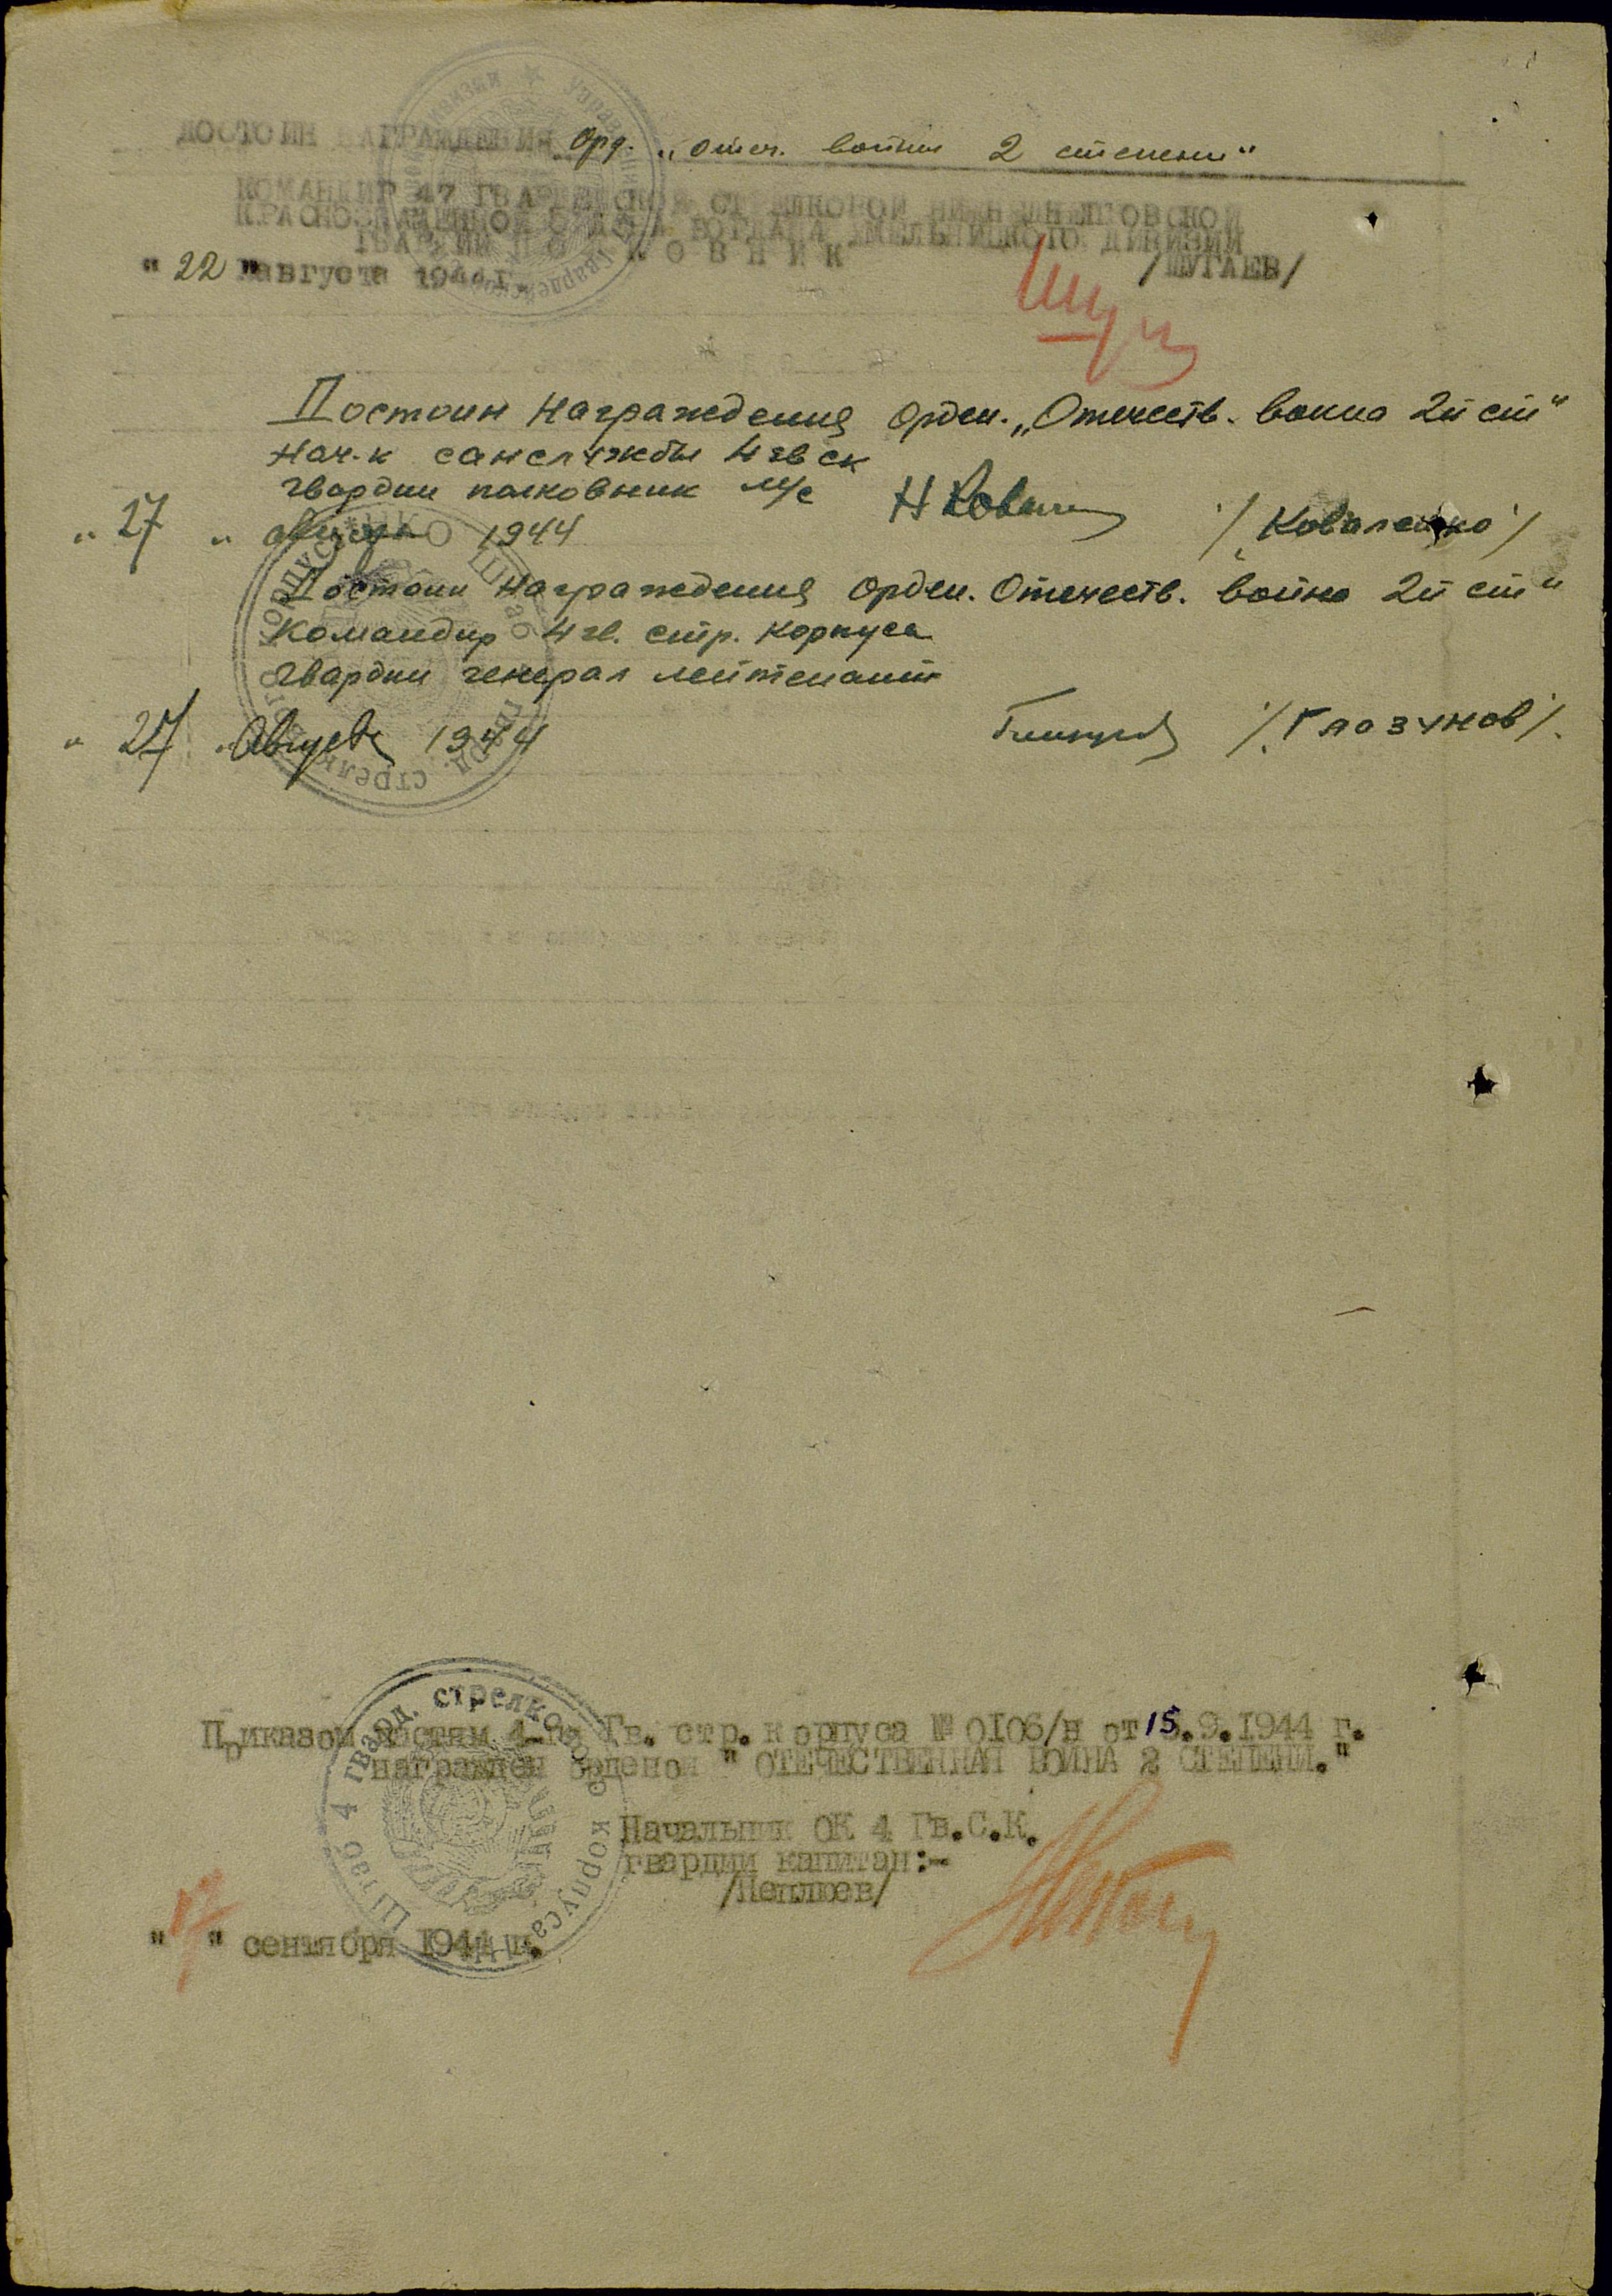 ДОСТОИН НАГРАЖДЕНИЯ Орд. „Отеч. войны 2 степени“
КОМАНДИР 47 ГВАРДЕЙСКОЙ СТРЕЛКОВОЙ НИЖНЕДНЕПРОВСКОЙ
КРАСНОЗНАМЕННОЙ ОРДЕНА БОГДАНА ХМЕЛЬНИЦКОГО ДИВИЗИИ
ГВАРДИИ ПОЛКОВНИК
"22" августа 1944 г. /ШУГАЕВ/
Достоин награждения Орден. „Отечеств. война 2й ст“
Нач-к санслужбы 4 гв ск
гвардии полковник м/с Н Ковален
„27„ августа 1944 /Коваленко/
Достоин награждения Орден. Отечеств. война 2й ст“
Командир 4 гв. стр. корпуса
гвардии генерал лейтенант
„27„ Августа 1944 /Глазунов/
Приказом частям 4-го Гв. стр. корпуса № 0106/н от 15.9.1944 г.
награжден орденом " ОТЕЧЕСТВЕННАЯ ВОЙНА 2 СТЕПЕНИ."
Начальник ОК 4 Гв.С.К.
гвардии капитан:-
/Неплюев/
"17" сентября 1944 г.
Штаб 4 гвард. стрелкового корпуса